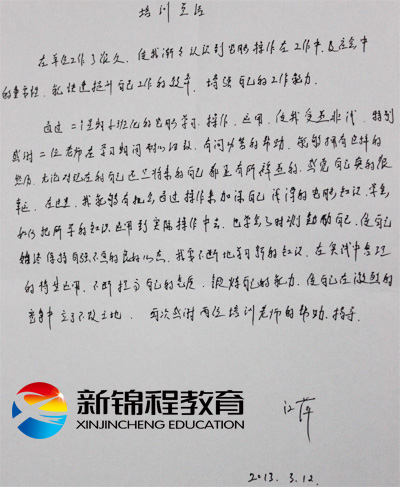 培训总结
在单位工作了很久,使我渐々认识到电脑操作在工作中及社会中
的重要性,能快速提升自己工作的效率,增强自己的工作能力.
通过二个星期小班化的电脑学习,操作,运用,使我受益非浅,特别
感谢二位老师在学习期间耐心的教,有问必答的帮助,能够拥有这样的
老师,无论对现在的自己还是将来的自己都是有所
在这里,我能够有机会通过操作来加深自己浅薄的电脑知识,学会
如何把所学的知识运用到实际操作中去,也学会了时刻勉励自己,使自己
保持自强不息的良好心态,我要不断地学习新的知识,在实践中合理
的将其运用,不断提高自己的素质,锻炼自己的能力,使自己在激烈的
竞争中立于不败之地. 再次感谢两位培训老师的帮助、指导.
新锦程教育
XINJINCHENG EDUCATION
江萍
2013.3.12.